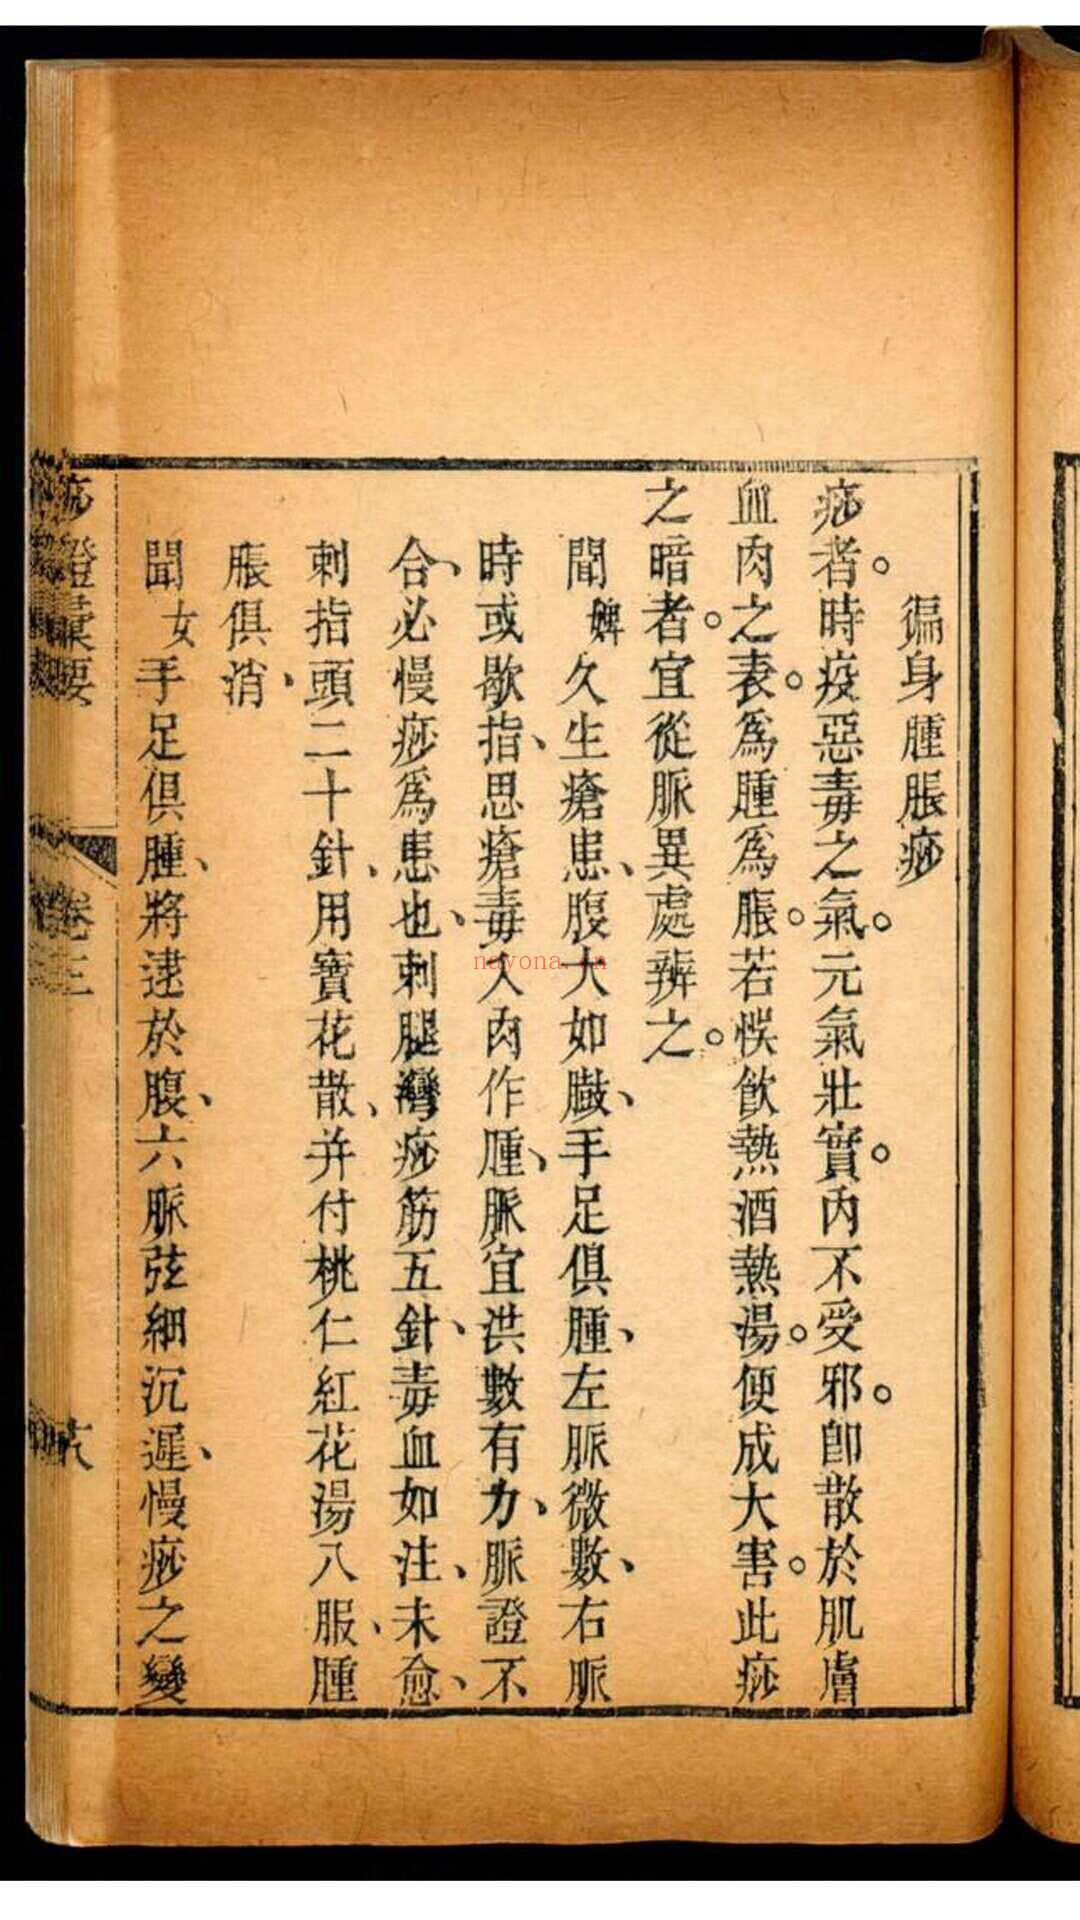 徧身腫脹痧
痧者。時疫惡毒之氣。元氣壯實。内不受邪。卽散於肌膚
血肉之表。爲腫爲脹。若悞飮熱酒熱湯。便成大害。此痧
之暗者。宜從脈異處辨之。
聞婢久生瘡患、腹大如臌、手足俱腫、左脈微數、右脈
時或歇指、思瘡毒入肉作腫、脈宜洪數有力、脈證不
合、必慢痧爲患也、刺腿灣痧筋五針、毒血如注、未愈、
刺指頭二十針、用寶花散、并付桃仁紅花湯八服、腫
脹俱消、
聞女手足俱腫、將逮於腹、六脈弦細沉遲、慢痧之變
痧證彙要
卷三
nayona.cn